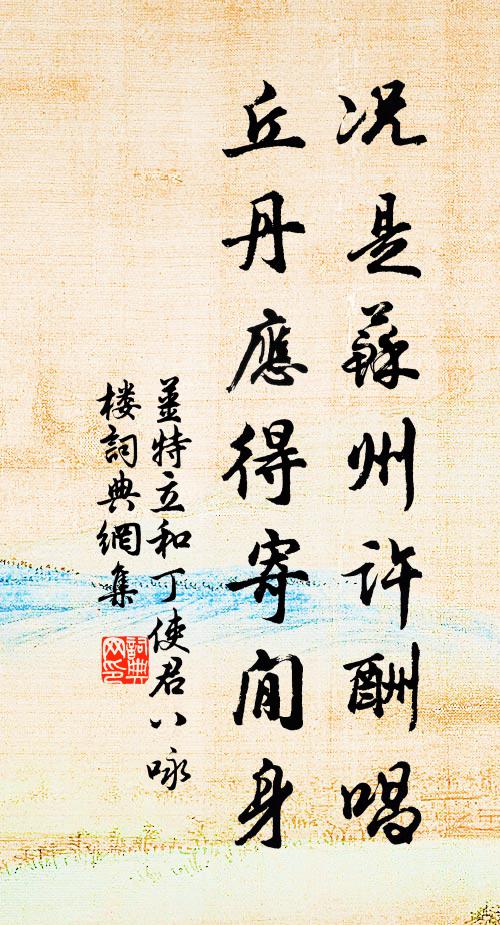 况是蘇州許酬唱
丘丹應得寄閒身
姜特立和丁使君八咏
楼詞典網集
詞典网印